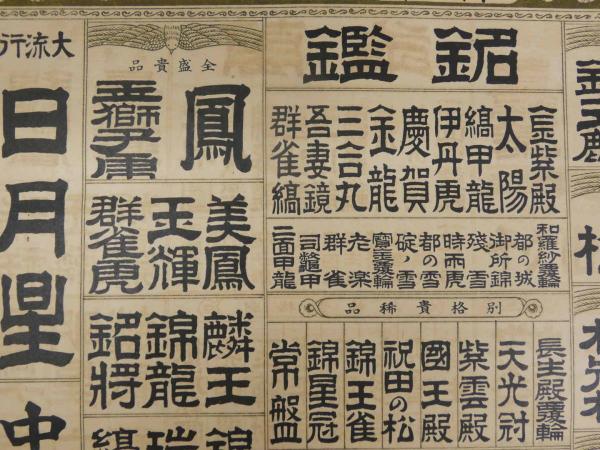 銘鑑
金紫殿
太陽
縞甲龍
伊丹虎
慶賀
金龍
三合丸
吾妻鏡
群雀縞
和羅紗覆輪
都の城
御所錦
殘雪
時雨虎
都の雪
碇ノ雪
寶玉覆輪
老楽
群雀
司龍甲
二面甲龍
別格貴稀品
長生殿覆輪
天光冠
紫雲殿
國王殿
祝田の松
錦王雀
錦星冠
常盤
全盛貴品
鳳
玉獅子虎
美鳳
玉輝
群雀虎
麟王
錦龍
銘將
錦
縞
大流行
日月星
中